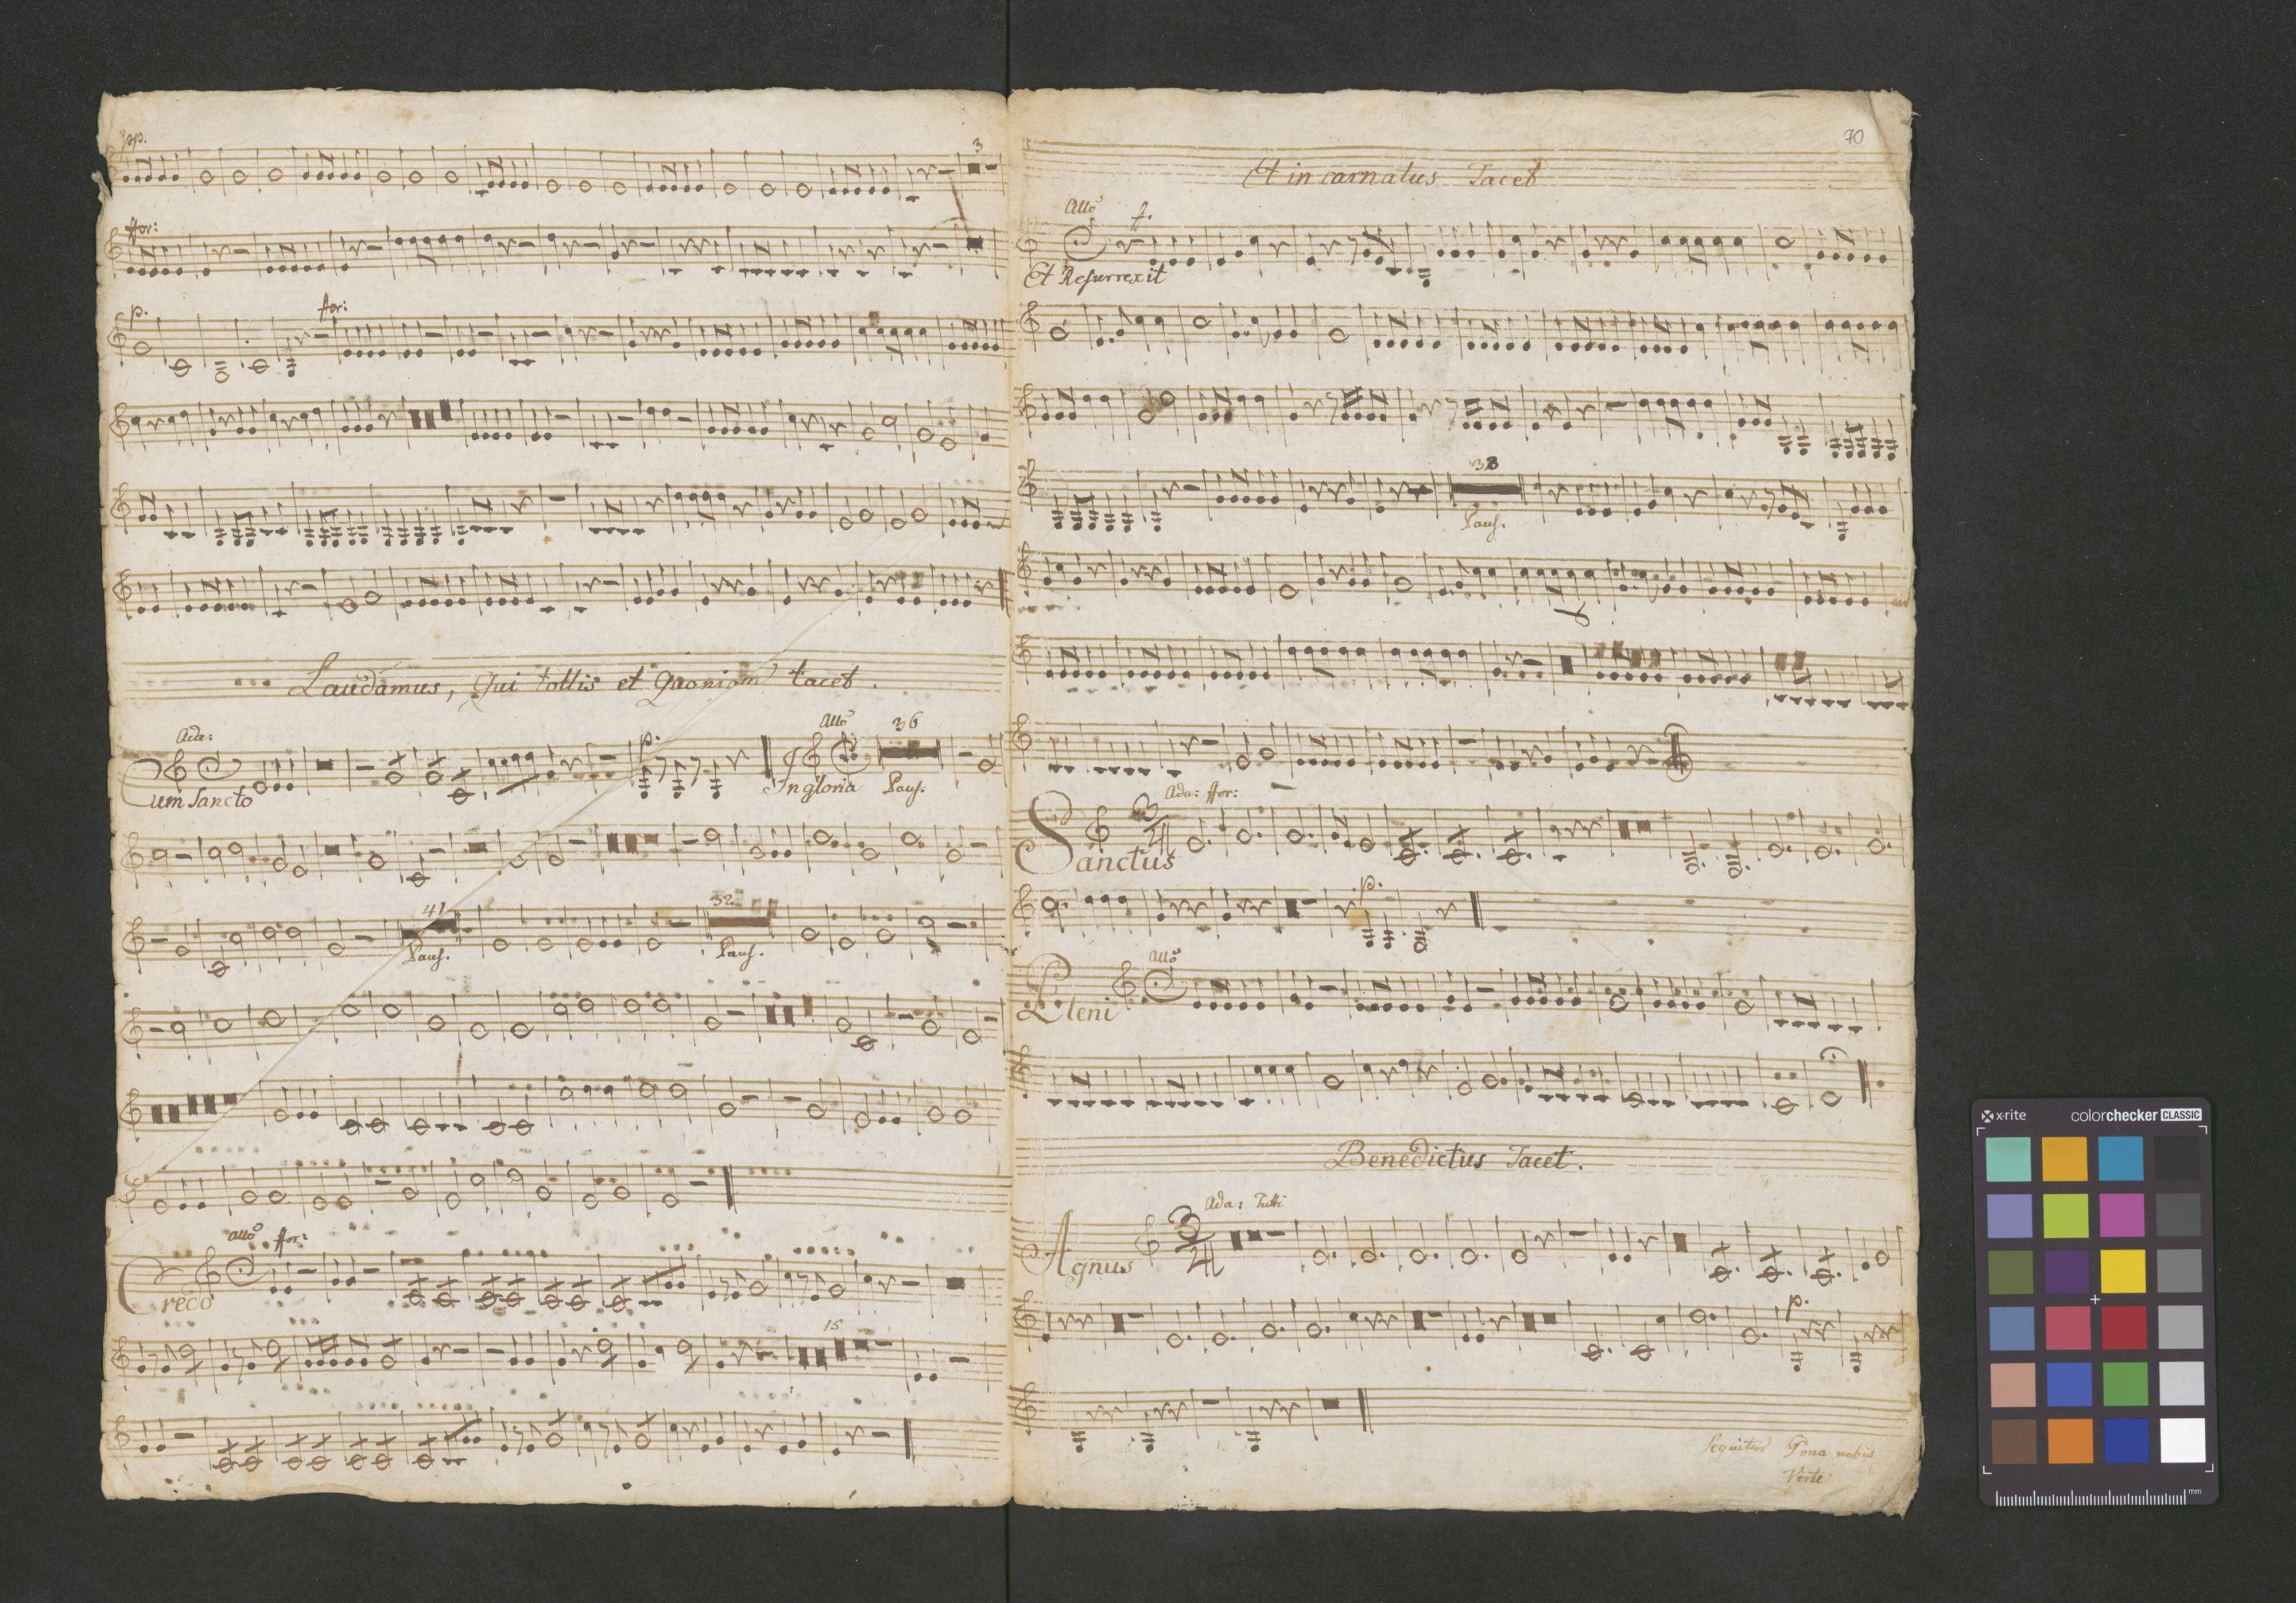 pp.
3
ffor:
p.
for:
Laudamus, Qui tollis et Quoniam tacet.
Ada:
Cum Sancto
p.
Allo
In gloria
36
Paus.
41
Paus.
32
Paus.
Allo ffor:
Credo
15
70
Et incarnatus Tacet
Allo f.
Et Resurrexit
Paus.
Ada: ffor:
Sanctus
3
4
p.
Allo
Pleni
Benedictus Tacet.
Ada: Tutti
Agnus
3
4
p.
Sequitur Dona nobis
Verte
x-rite
colorchecker CLASSIC
mm